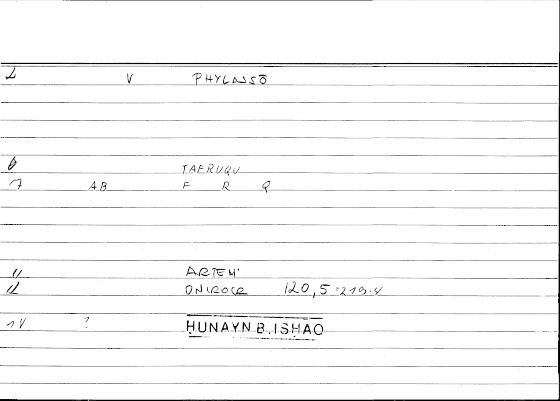 1 V PHYLASSŌ
6 TAFRUQU
7 AB F R Q
11 ARTEM.
12 ONIROCR 120,5 : 219.4
14 ? HUNAYN B. ISHAQ